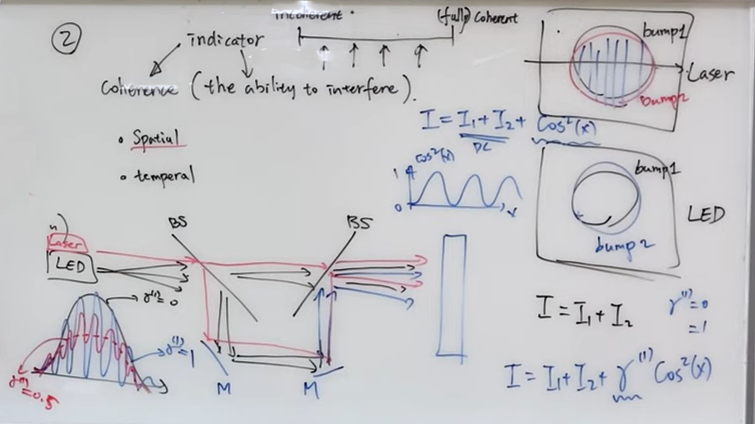 ②
incoherent
(fully) Coherent
indicator
Coherence (the ability to interfere).
• Spatial
• temperal
I = I₁ + I₂ + Cos²(x)
DC
cos²(x)
1
0
x
bump1
Laser
bump2
bump1
LED
bump 2
BS
BS
Laser
LED
M
M
γ⁽¹⁾=0
γ⁽¹⁾=1
γ⁽¹⁾=0.5
I = I₁ + I₂
γ⁽¹⁾=0
=1
I = I₁ + I₂ + γ⁽¹⁾ Cos²(x)